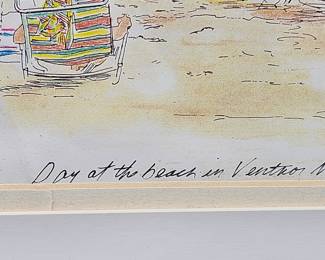 Day at the beach in Ventnor N